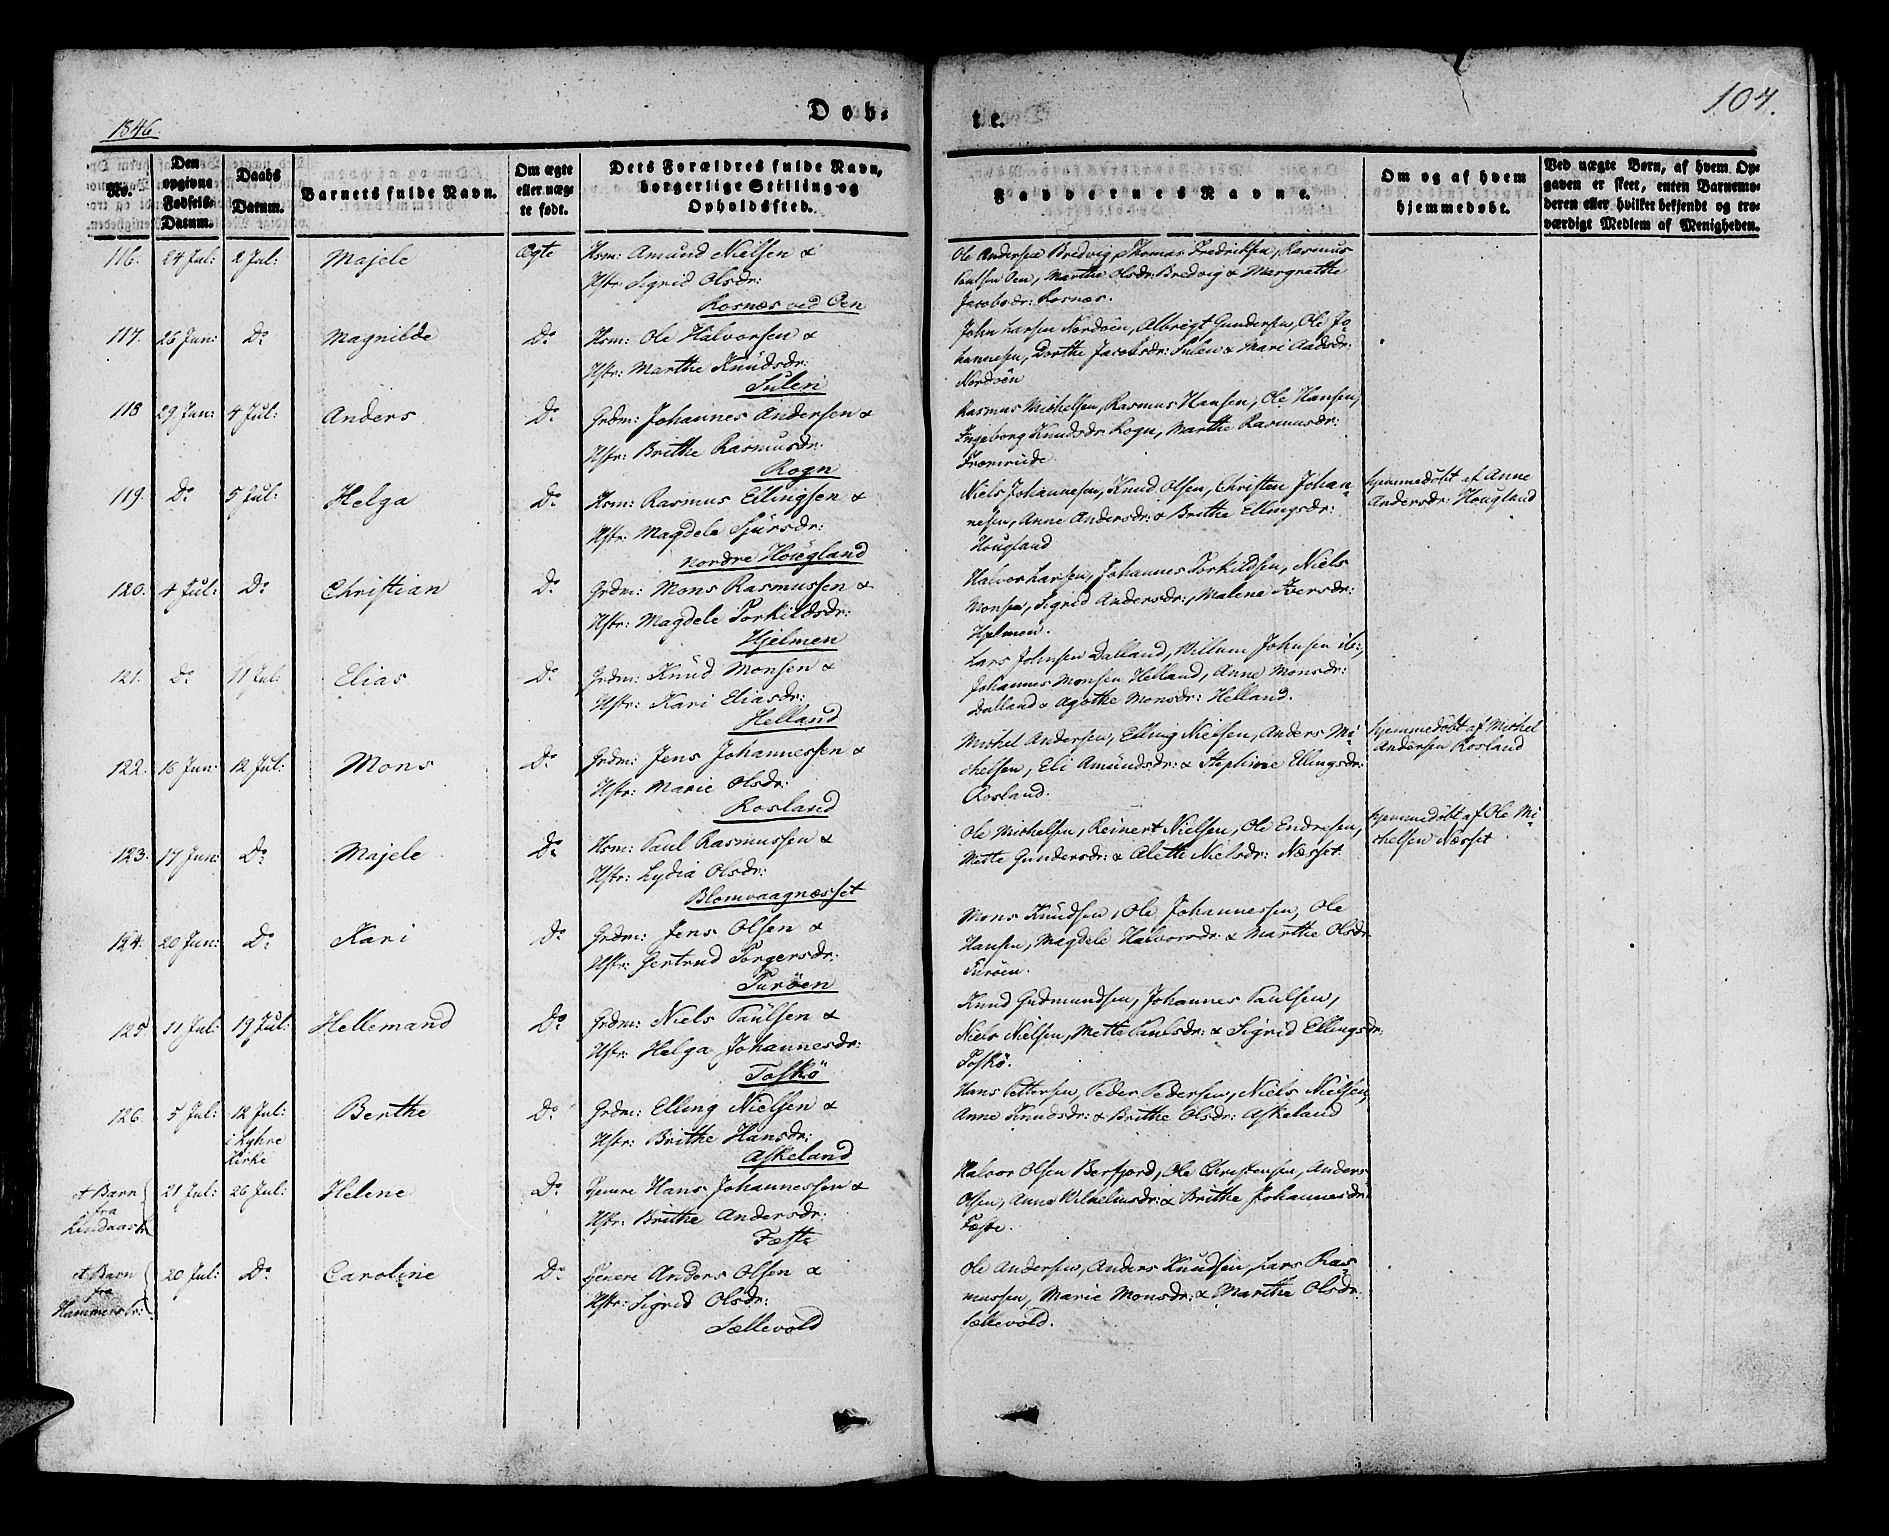 1846.
Døb-
te.
104.
No.
Den opgivne Fødsels-Datum.
Daabs Datum.
Barnets fulde Navn.
Om ægte eller uægte født.
Dets Forældres fulde Navn, borgerlige Stilling og Opholdssted.
Faddernes Navne.
Om og af hvem hjemmedøbt.
Ved uægte Børn, af hvem Opgaven er skeet, enten Barnemoderen eller hvilket bekjendt og troværdigt Medlem af Menigheden.
116. 24 Jul: 2 Jul: Majele Ægte Hsm: Amund Nielsen &
Hstr: Sigrid Olsdr:
Rosnæs ved Øen
Ole Andersen Bredvig, Thomas Fredriksen, Rasmus
Paulsen Øen, Marthe Olsdr: Bredvig & Margrethe
Jacobsdr: Rosnæs.
117. 26 Jun: Do Magnilde Do Hsm: Ole Halvorsen &
Hstr: Marthe Knudsdr:
Sulen
John Larsen Nordøen, Albrigt Gundersen, Ole Jo-
hannesen, Dorthe Jacobsdr: Sulen & Mari Aadsdr:
Nordöen
118 29 Jun: 4 Jul: Anders Do Grdm: Johannes Andersen &
Hstr: Brithe Rasmusdr:
Rogn
Rasmus Michelsen, Rasmus Hansen, Ole Hansen,
Ingeborg Knudsdr: Rogn, Marthe Rasmusdr:
Fromreide
119. Do 5 Jul: Helga Do Hsm: Rasmus Ellingsen &
Hstr: Magdele Sjursdr:
nordre Hougland
Niels Johannesen, Knud Olsen, Christen Johan-
nesen, Anne Andersdr: & Brithe Ellingsdr:
Hougland
hjemmedöbt af Anne
Andersdr: Hougland
120. 4 Jul: Do Christian Do Grdm: Mons Rasmussen &
Hstr: Magdele Torkildsdr:
Hjelmen
Halvor Larsen, Johannes Torkildsen, Niels
Monsen, Sigrid Andersdr:, Malene Iversdr:
Hjelmen.
121. Do 11 Jul: Elias Do Grdm: Knud Monsen &
Hstr: Kari Eliasdr:
Helland
Lars Johnsen Dalland, Willum Johnsen ib:,
Johannes Monsen Helland, Anne Monsdr:
Dalland & Agothe Monsdr: Helland.
122. 16 Jun: 12 Jul: Mons Do Grdm: Jens Johannessen &
Hstr: Marie Olsdr:
Rosland
Michel Andersen, Elling Nielsen, Anders Mi-
chelsen, Eli Amundsdr: & Stephine Ellingsdr:
Rosland.
hjemmedöbt af Michel
Andersen Rosland
123. 17 Jun: Do Majele Do Hsm: Paul Rasmussen &
Hstr: Lydia Olsdr:
Blomvaagnæsset
Ole Michelsen, Reinert Nielsen, Ole Endresen,
Mette Gundersdr: & Alette Nielsdr: Næsset.
hjemmedöbt af Ole Mi-
chelsen Næsset
124. 20 Jun: Do Kari Do Grdm: Jens Olsen &
Hstr: Gertrud Torgersdr:
Turöen
Mons Knudsen, Ole Johannessen, Ole
Hansen, Magdele Halvorsdr: & Marthe Olsdr
Turöen.
125 11 Jul: 19 Jul: Hellemand Do Grdm: Niels Paulsen &
Hstr: Helga Johannesdr:
Toskö
Knud Gudmundsen, Johannes Paulsen,
Niels Nielsen, Mette Paulsdr: & Sigrid Ellingsdr:
Toskö.
126. 5 Jul: 12 Jul: Berthe Do Grdm: Elling Nielsen &
i Lyhre
Kirke
Hstr: Brithe Hansdr:
Askeland
Hans Pettersen, Peder Pedersen, Niels Nielsen,
Anne Knudsdr: & Brithe Olsdr: Askeland
et Barn
fra
Lindaas
21 Jul: 26 Jul: Helene Do Gevorb: Hans Johannessen &
Hstr: Brithe Andersdr:
Fæste
Halvor Olsen Berfjord, Ole Christensen, Anders
Olsen, Anne Wilhelmsdr: & Brithe Johannesdr:
Fæste.
et Barn
fra
Hammers
20 Jul: Do Caroline Do Anders Olsen &
Hstr: Sigrid Olsdr:
Sællevold
Ole Andersen, Anders Knudsen, Lars Ras-
mussen, Marie Monsdr: & Marthe Olsdr:
Sællevold.